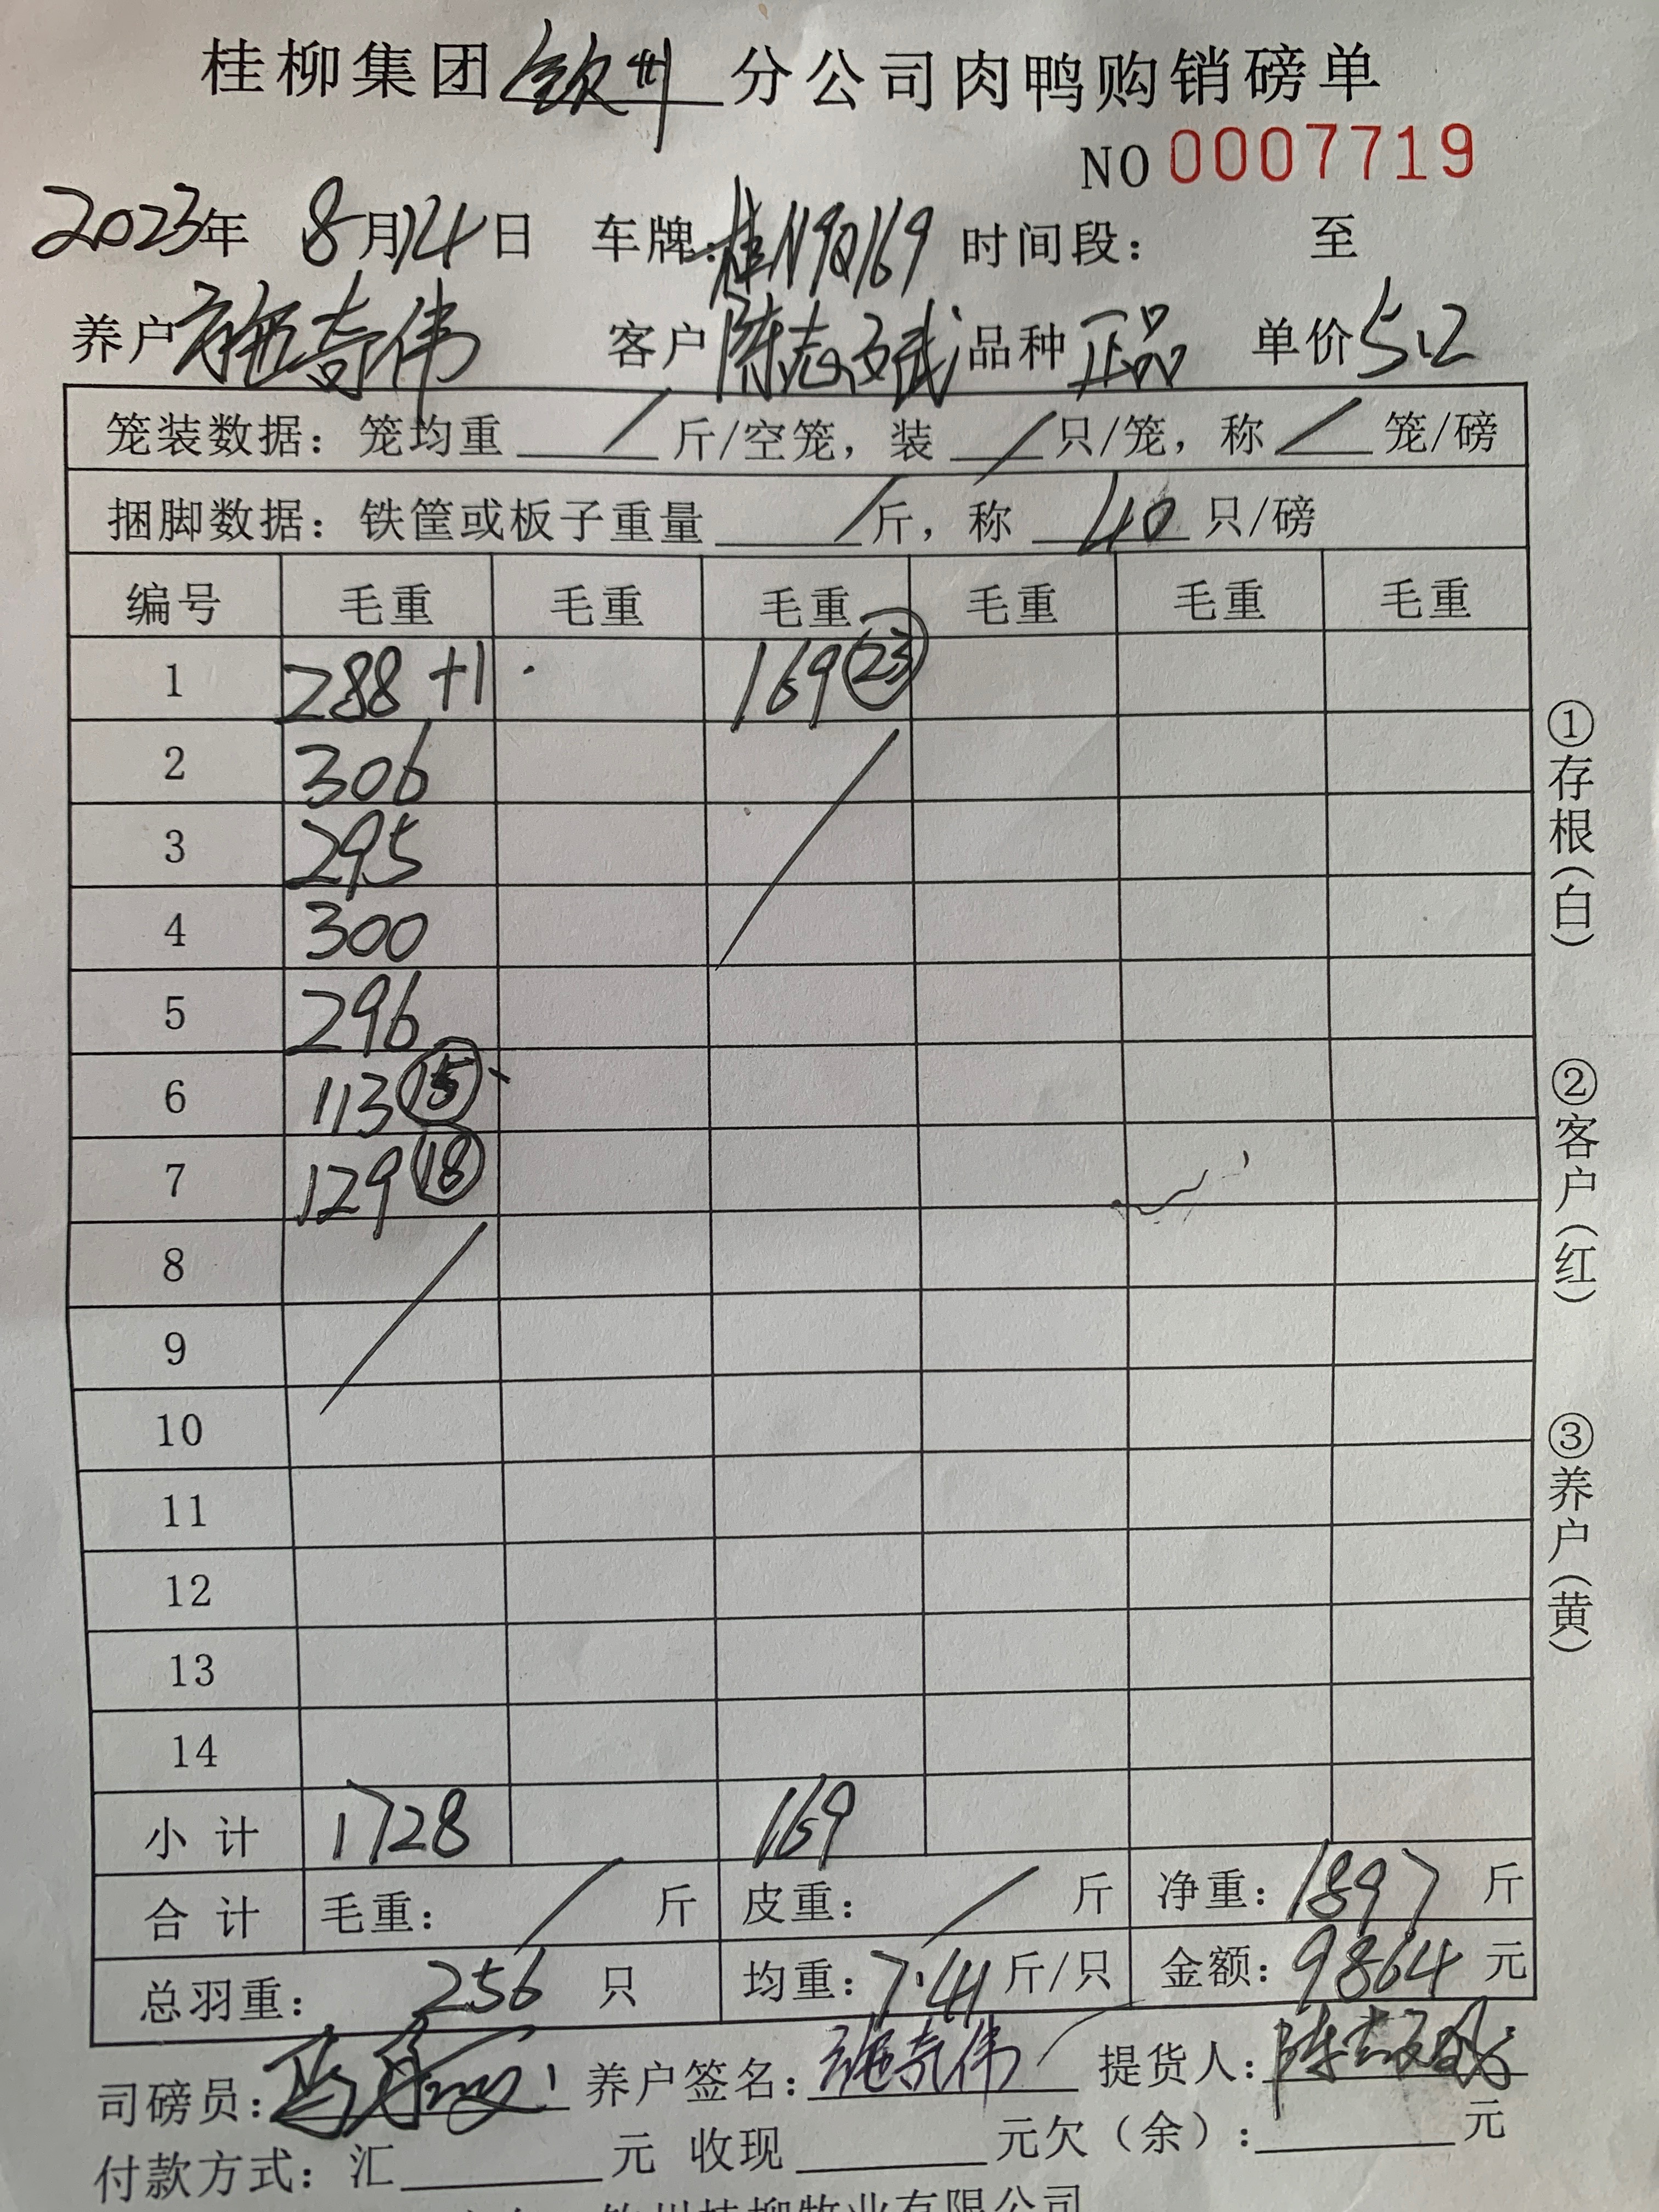 桂柳集团钦州分公司肉鸭购销磅单
NO 0007719
2023年 8月14日 车牌：桂N9Q169 时间段： 至
养户 施奇伟 客户 陈志 武 品种 正品 单价 5.2
笼装数据：笼均重 / 斤/空笼，装 / 只/笼，称 / 笼/磅
捆脚数据：铁筐或板子重量 / 斤，称 40 只/磅
编号 毛重 毛重 毛重 毛重 毛重 毛重
1 288+1 169 23
2 306
3 295
4 300
5 296
6 113 15
7 129 18
8
9
10
11
12
13
14
小计 1728 169
合计 毛重： / 斤 皮重： / 斤 净重：1897 斤
总羽重： 256 只 均重：7.41 斤/只 金额：9864 元
司磅员： 养户签名：施奇伟 提货人：陈志
付款方式：汇 元 收现 元欠（余）： 元
钦州桂柳牧业有限公司
①存根（白）
②客户（红）
③养户（黄）